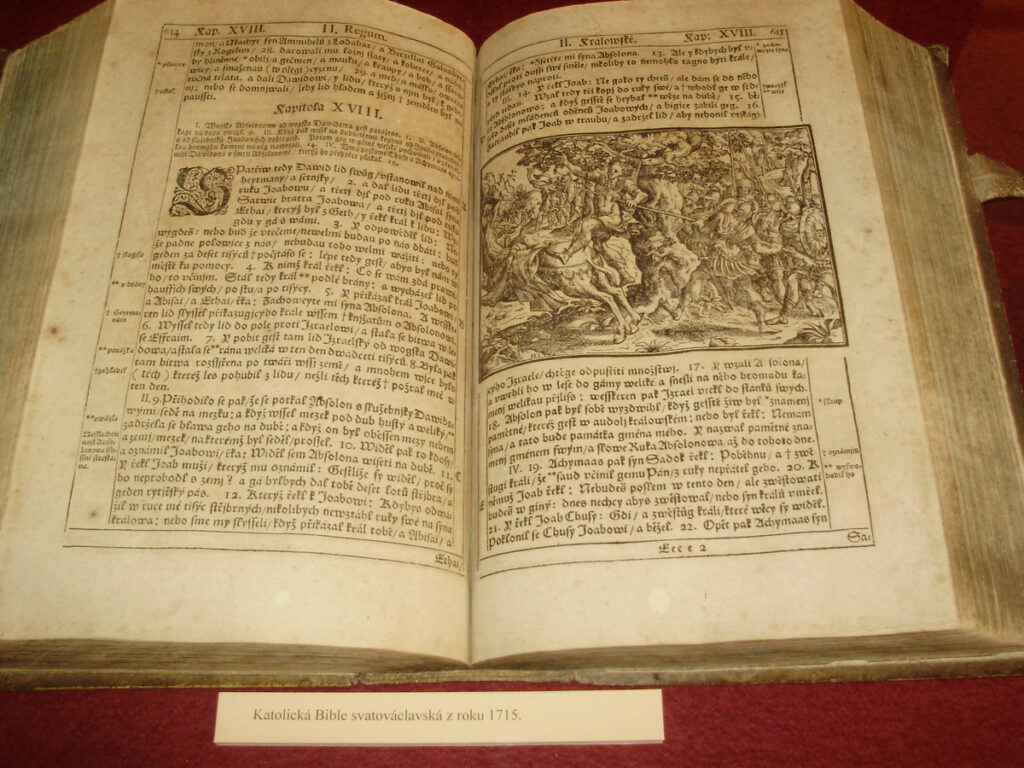 614 Kap. XVIII. II. Regum.
mon/ a Machyr syn Ammihelů z Lodabar/ a Berzellai Galaadský
ský z Rogelim/ 28. darowali mu
by hlinėné/ obilj a gečmen/ a mauku/ a kraupy/ a bob/
wicy/ a smaženau
tučná telata. a dali Dawidowi/ y lidu/ kterýž s njm byl/ k
nj: nebo se domnjwali/ žeby lid hladem a žjznj zemdlen byl na
paussti.
Kapitola XVIII.
I. Wogska Absolonowo od wogska Dawidowa gest poraženo.
SPatřiw tedy Dawid lid swůg/ vstanowil nad njmi
heytmany/ a setnjky/ 2. a dal lidu třetj djl pod
ruku Joabowu/ a třetj djl pod ruku Abisai syna
Sarwie bratra Joabowa/ a třetj djl pod ruku
Ethai/ kterýž byl z Geth/ y řekl král k lidu: Wy-
gdu y gá s wámi. 3. Y odpowěděl lid:
wygdeš: nebo buď že vtečeme/ newelmi budau po nás dbáti:
že padne polowice z nás/ nebudau toho welmi wážiti: nebo ty
geden za deset tisýců počjtáss se: lépe tedy gest/ abys byl nám w
městě ku pomocy. 4. K nimž král řekl: Co se wám zdá prawé-
ho/ to včinjm. Stál tedy král podlé brány: a wycházel lid po
hauffjch swých/ po stu/ a po tisýcy. 5. Y přikázal král Joabowi/
a Abisai/ a Ethai/ řka: Zachoweyte mi syna Absolona. A wesske-
ren lid slyssel přikazugjcyho krále wssem knjžatům o Absolonowi.
6. Wyssel tedy lid do pole proti Jzraelowi/ a stala se bitwa w le-
se Effraim. 7. Y pobit gest tam lid Jzraelský od wogska Dawi-
dowa/ a stala se rána weliká w ten den dwadceti tisýců. 8. Byla pak
tam bitwa rozssjřena po twáři wssj země/ a mnohem wjce bylo
(těch) kteréž les pohubil z lidu/ nežli těch kteréž požral meč w
ten den.
II. 9. Přihodilo se pak/ že se potkal Absolon s služebnjky Dawido-
wými/ sedě na mezku: a když wssel mezek pod dub hustý a weliký/
zadržela se hlawa geho na dubě: a když on byl oběssen mezy nebem
a zemj/ mezek/ na kterémž byl seděl/ prossel. 10. Widěl pak to kdosy/
a oznámil Joabowi/ řka: Widěl sem Absolona wiseti na dubě. 11.
Y řekl Joab muži/ kterýž mu oznámil: Gestliže sy widěl/ proč sy
ho neprobodl s zemj? a gá byłbych dal tobě deset lotů střjbra/ a
geden rytjřský pás. 12. Kterýž řekl k Joabowi: Kdybys odwá-
žil w ruce mé tisýc střjbrných/ nikolibych newztáhl ruky swé na syna
králowa: nebo sme my slysseli/ když přikázal král tobě/ a Abisai/ a
Ethai/
II. Kralowske. Kap: XVIII. 615
Ethai/ řka: Ostřežte mi syna Absolona. 13. Ale y kdybych byl
včinil proti dussi swé směle/ nikoliby to nemohlo tagno byti krále/
a ty stálbys naproti.
III. 14. Y řekl Joab: Ne gako ty chceš/ ale dám se do něho
před tebau. Wzal tedy tři kopj do ruky swé/ a wbodl ge w srdce
Absolonowo: a když gesstě se heybal wěze na dubě/ 15. bě-
želo deset mládenců oděnců Joabowých/ a bigjce zabili geg. 16.
Zatraubil pak Joab w traubu/ a zadržel lid/ aby nehonil vtjkagj-
cyho Jzraele/ chtěge odpustiti množstwj. 17. Y wzali Absolona/
a wrhli ho w lese do gámy weliké/ a snesli na něho hromadu ka-
menj welikau přjliss: wesskeren pak Jzrael vtekl do stanků swých.
18. Absolon pak byl sobě wyzdwihl/ když gesstě žiw byl znamenj
památné/ kteréž gest w audolj králowském: nebo byl řekl: Nemám
syna/ a tato bude památka gména mého. Y nazwal památné zna-
menj gménem swým/ a slowe Ruka Absolonowa/ až do tohoto dne.
IV. 19. Achymaas pak syn Sadok řekl: Poběhnu/ a zwě-
stugi králi/ že saud včinil gemu Pán/ z ruky nepřátel geho. 20. K
němuž Joab řekl: Nebudeš poslem w tento den/ ale zwěstowati
budeš w giný: dnes nechcy abys zwěstowal/ nebo syn králů vmřel.
21. Y řekl Joab Chusy: Gdi/ a zwěstůg králi/ které wěcy sy widěl.
Poklonil se Chusy Joabowi/ a běžel. 22. Opět pak Achymaas syn
Eeee 2
Sa-
Katolická Bible svatováclavská z roku 1715.